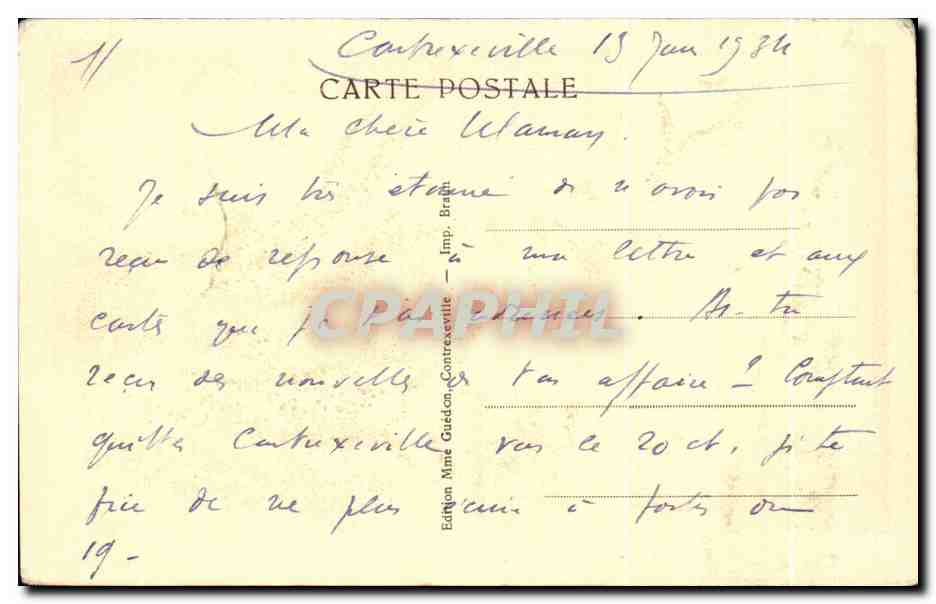 11
Contrexeville 13 Juin 1934
CARTE POSTALE
Ma chère Maman.
Je suis très étonné de n'avoir pas
reçu de réponse à ma lettre et aux
cartes que je t'ai adressées. As-tu
reçu des nouvelles de ton affaire ? Comptant
quitter Contrexeville vers le 20 ct, je te
prie de ne plus écrire à partir du
19-
Edition Mme Guédon, Contrexeville — Imp. Braun
CPAPHIL